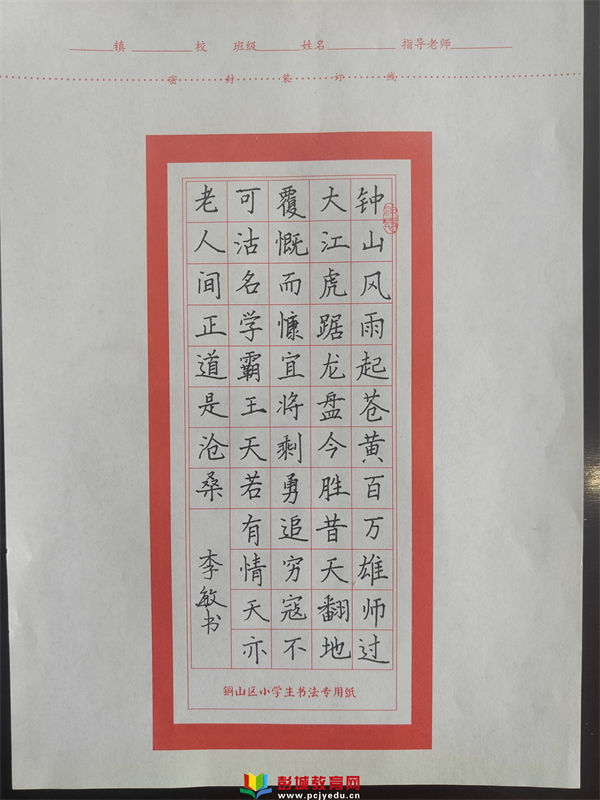 镇 校 班级 姓名 指导老师
密 封 装 订 线
钟山风雨起苍黄百万雄师过
大江虎踞龙盘今胜昔天翻地
覆慨而慷宜将剩勇追穷寇不
可沽名学霸王天若有情天亦
老人间正道是沧桑
李敏书
铜山区小学生书法专用纸
彭城教育网
www.pcjyedu.cn